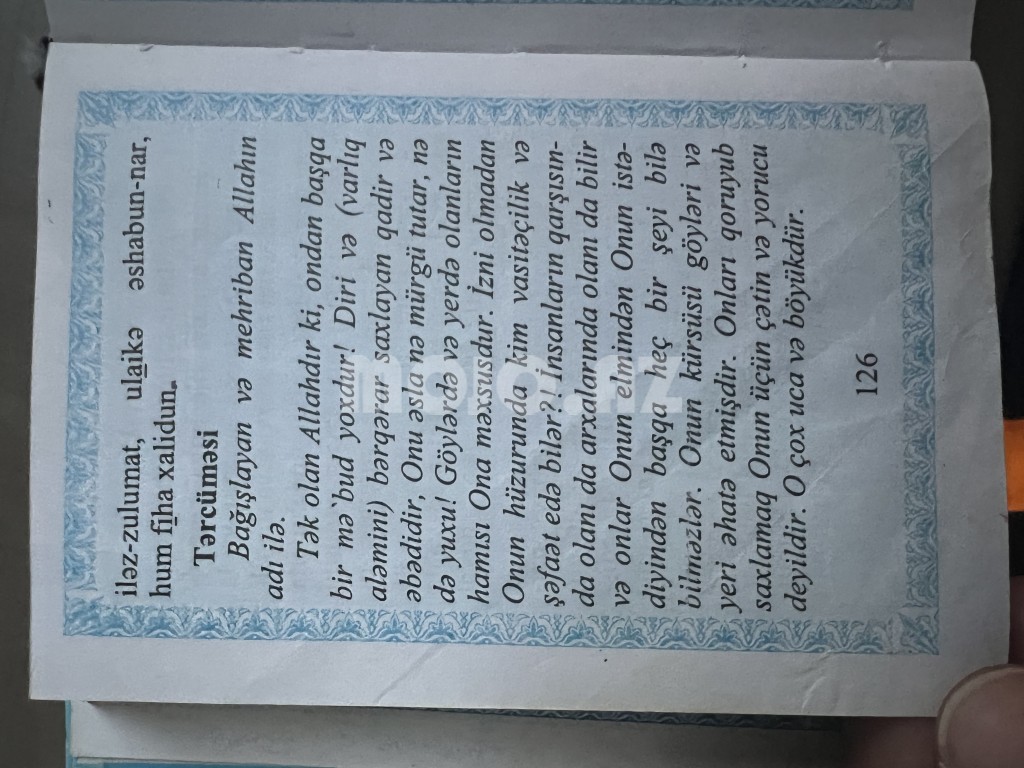 iləz-zulumat, ulaikə əshabun-nar,
hum fiha xalidun.
Tərcüməsi
Bağışlayan və mehriban Allahın
adı ilə.
Tək olan Allahdır ki, ondan başqa
bir mə`bud yoxdur! Diri və (varlıq
aləmini) bərqərar saxlayan qadir və
əbədidir, Onu əsla nə mürgü tutar, nə
də yuxu! Göylərdə və yerdə olanların
hamısı Ona məxsusdur. İzni olmadan
Onun hüzurunda kim vasitəçilik və
şəfaət edə bilər?! İnsanların qarşısın-
da olanı da arxalarında olanı da bilir
və onlar Onun elmindən Onun istə-
diyindən başqa heç bir şeyi bilə
bilməzlər. Onun kürsüsü göyləri və
yeri əhatə etmişdir. Onları qoruyub
saxlamaq Onun üçün çətin və yorucu
deyildir. O çox uca və böyükdür.
126